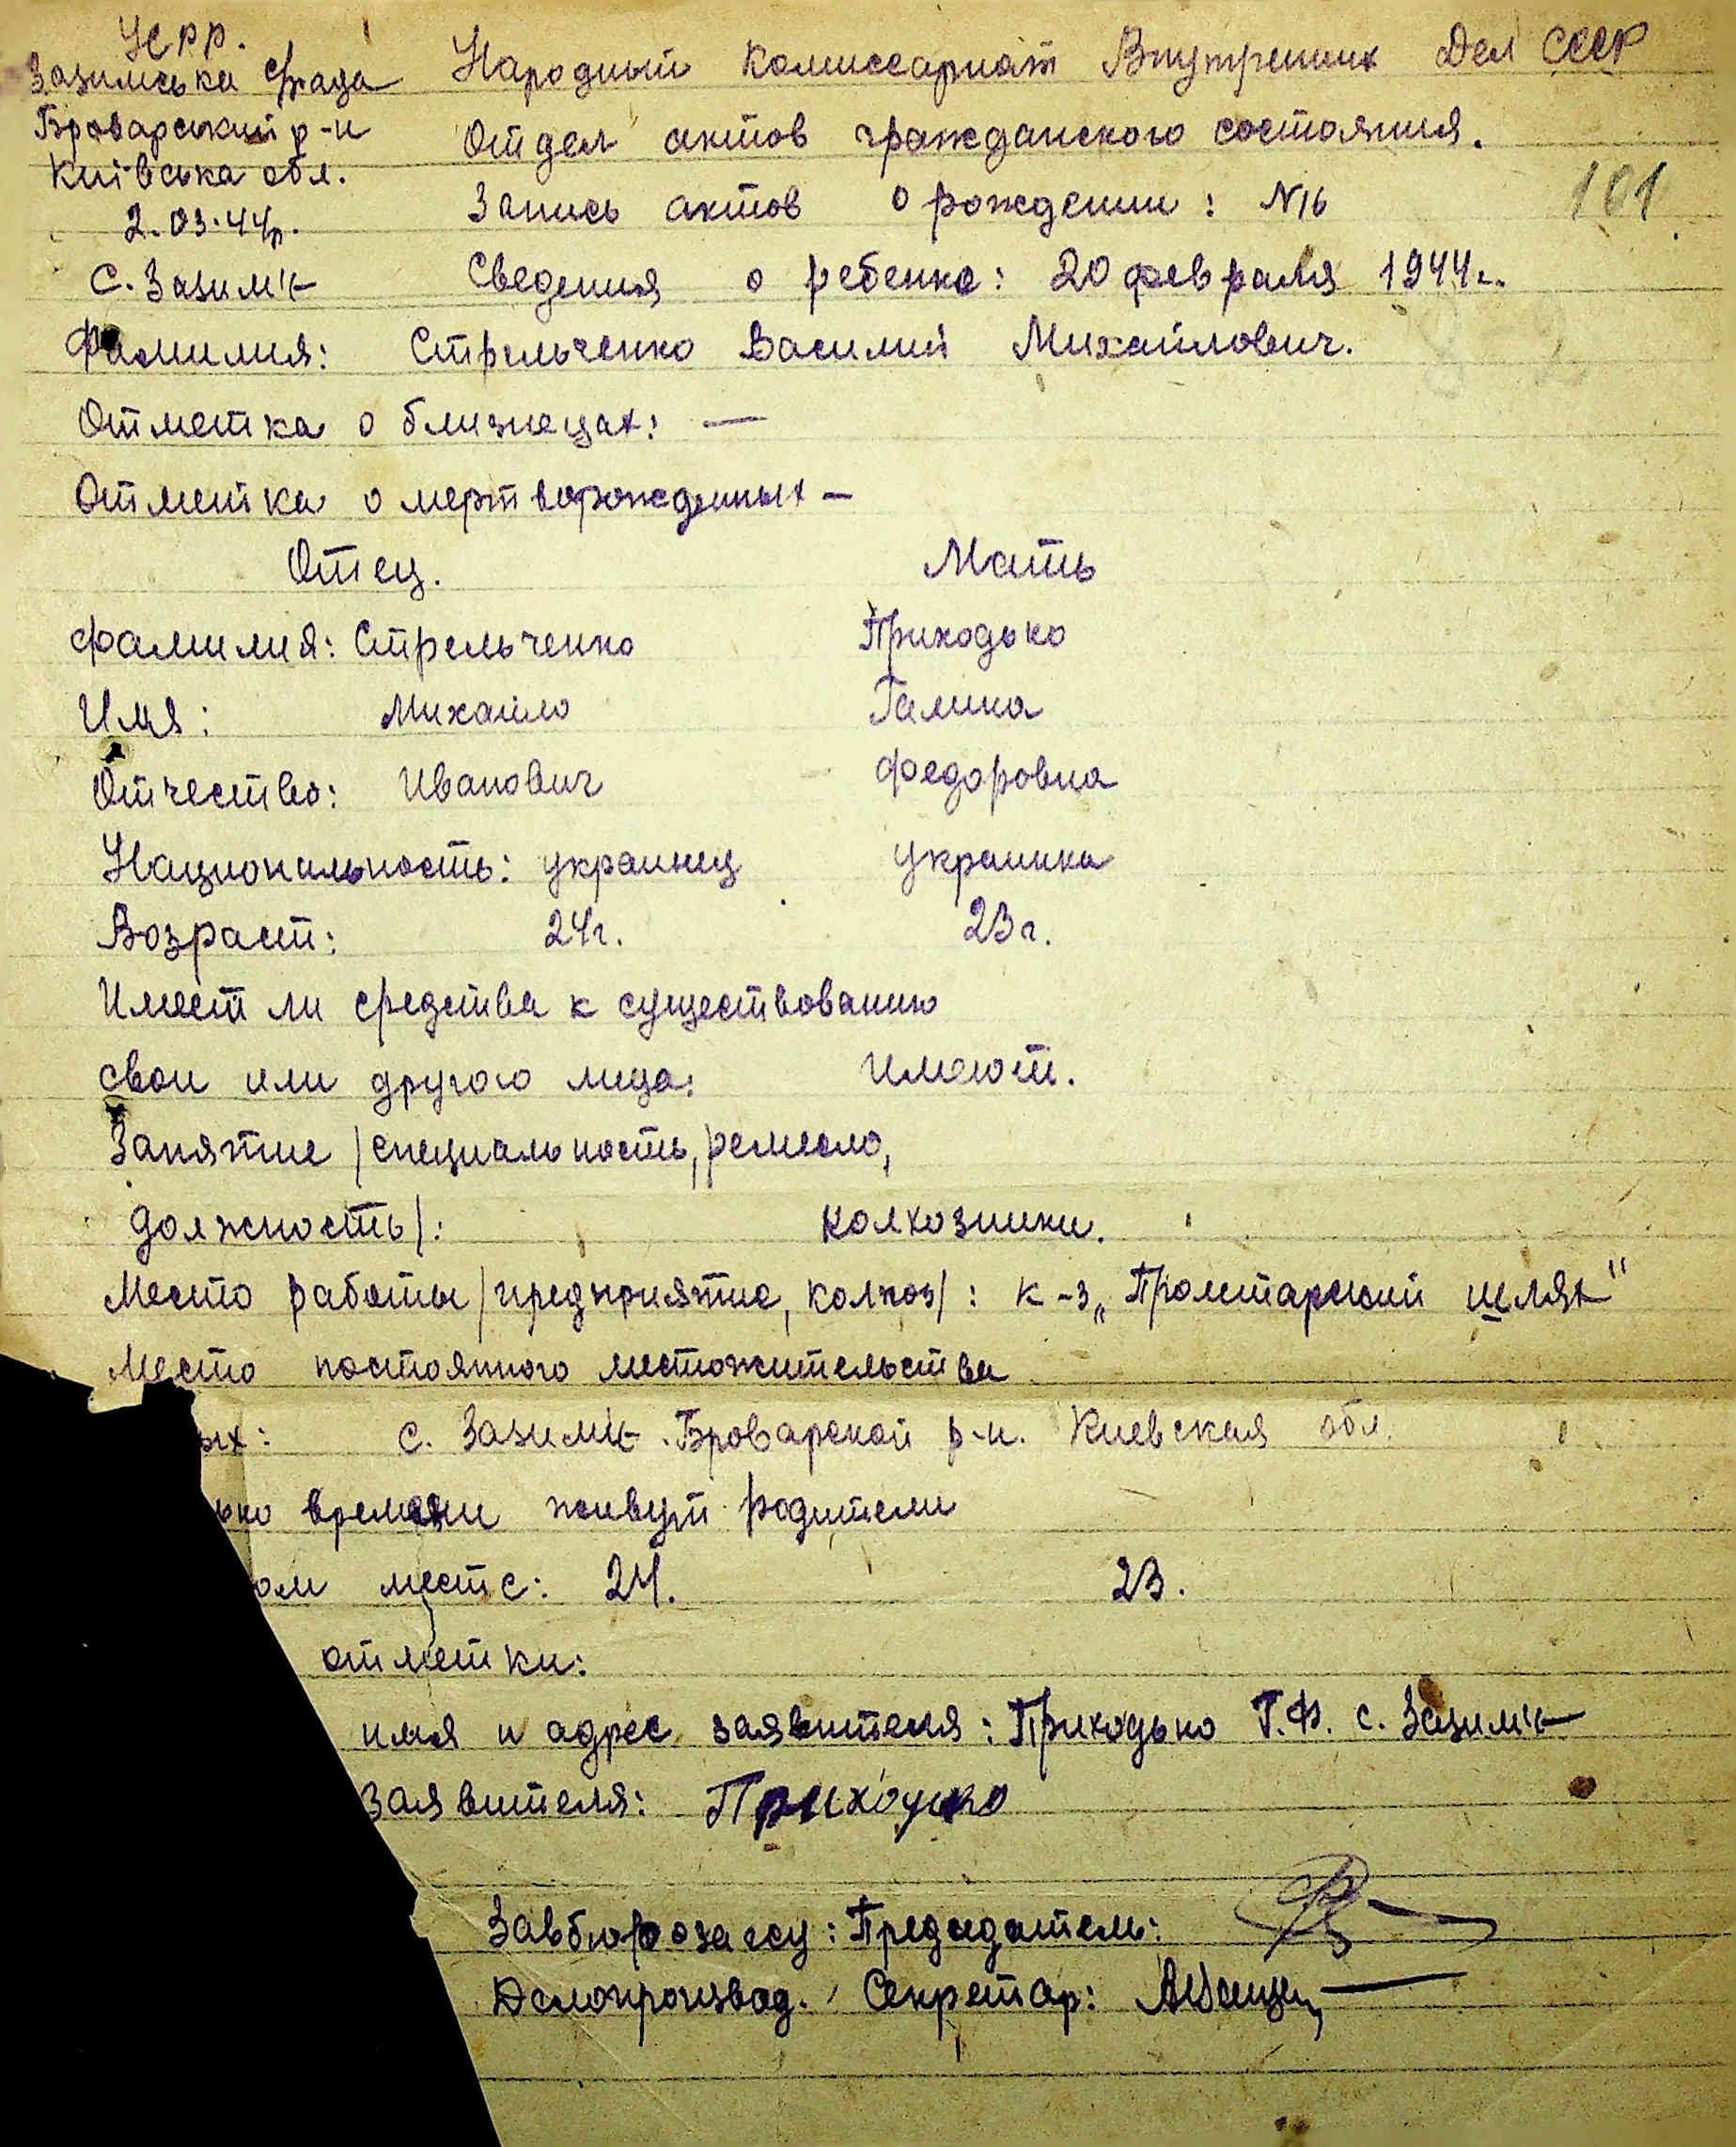 УСРР.
Зазимська с/рада
Броварський р-н
Київська обл.
2.03.44р.
с. Зазим'є
Народный Комиссариат Внутренних Дел СССР
Отдел актов гражданского состояния.
161
Запись актов о рождении: N16
Сведения о ребенке: 20 февраля 1944г.
Фамилия: Стрельченко Василий Михайлович.
Отметка о близнецах: —
Отметка о мертворожденных —
Отец. Мать
Фамилия: Стрельченко Приходько
Имя: Михайло Галина
Отчество: Иванович Федоровна
Национальность: украинец украинка
Возраст: 24г. 23г.
Имеет ли средства к существованию
свои или другого лица: Имеют.
Занятие /специальность, ремесло,
должность/: колхозники.
Место работы /предприятие, колхоз/: к-з „Пролетарский шлях"
Место постоянного местожительства
ых: с. Зазим'є Броварской р-н. Киевская обл.
ько времени живут родители
ом месте: 24. 23.
отметки:
имя и адрес заявителя: Приходько Г.Ф. с. Зазим'є
заявителя: Приходько
Завбюрозагсу: Председатель:
Делопроизвод. Секретар: